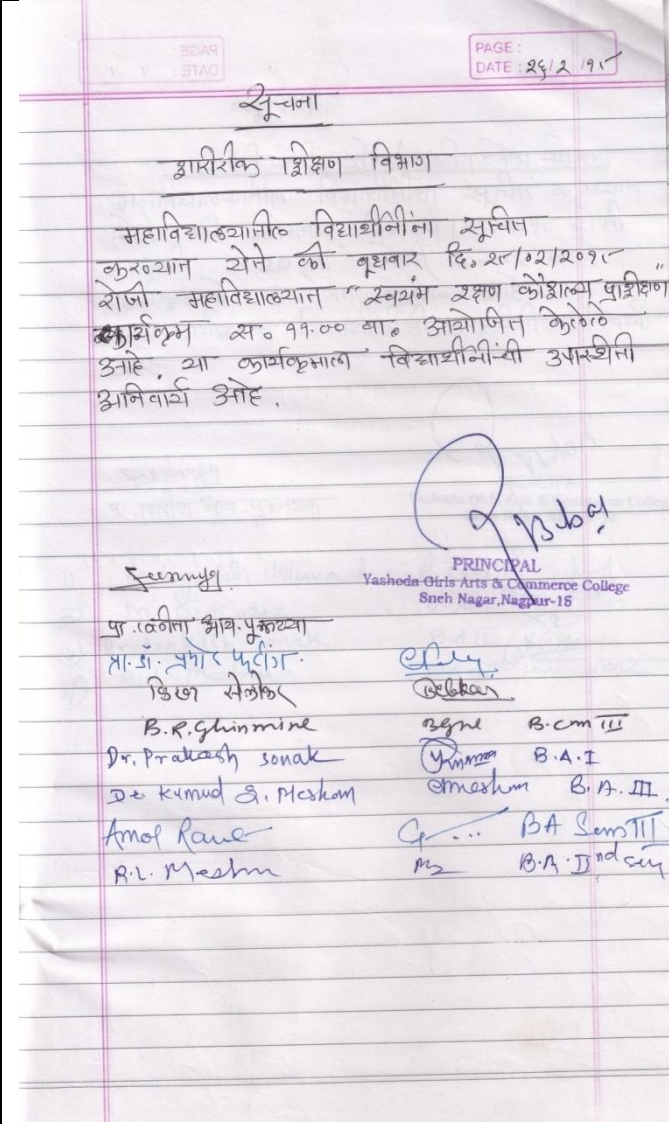 PAGE :
DATE : २६/२/१८
सूचना
शारिरीक शिक्षण विभाग
महाविद्यालयातील विद्यार्थीनींना सूचित
करण्यात येते की बूधवार दि. २८/०२/२०१८
रोजी महाविद्यालयात "स्वयंम रक्षण कौशल्य प्रशिक्षण"
कार्यक्रम स. ११.०० वा. आयोजित केलेले
आहे. या कार्यक्रमाला विद्यार्थीनींची उपस्थिती
अनिवार्य आहे.
PRINCIPAL
Yashoda Girls Arts & Commerce College
Sneh Nagar, Nagpur-15
प्रा. वनीता आय.
प्रा. डॉ. प्रमोद
B.R. Ghinmine B.com III
Dr. Prakash Sonak B.A.I
Dr Kumud S. Meshram B.A. III
Amol Raut BA Sem III
R.L. Meshram B.A. IInd sem